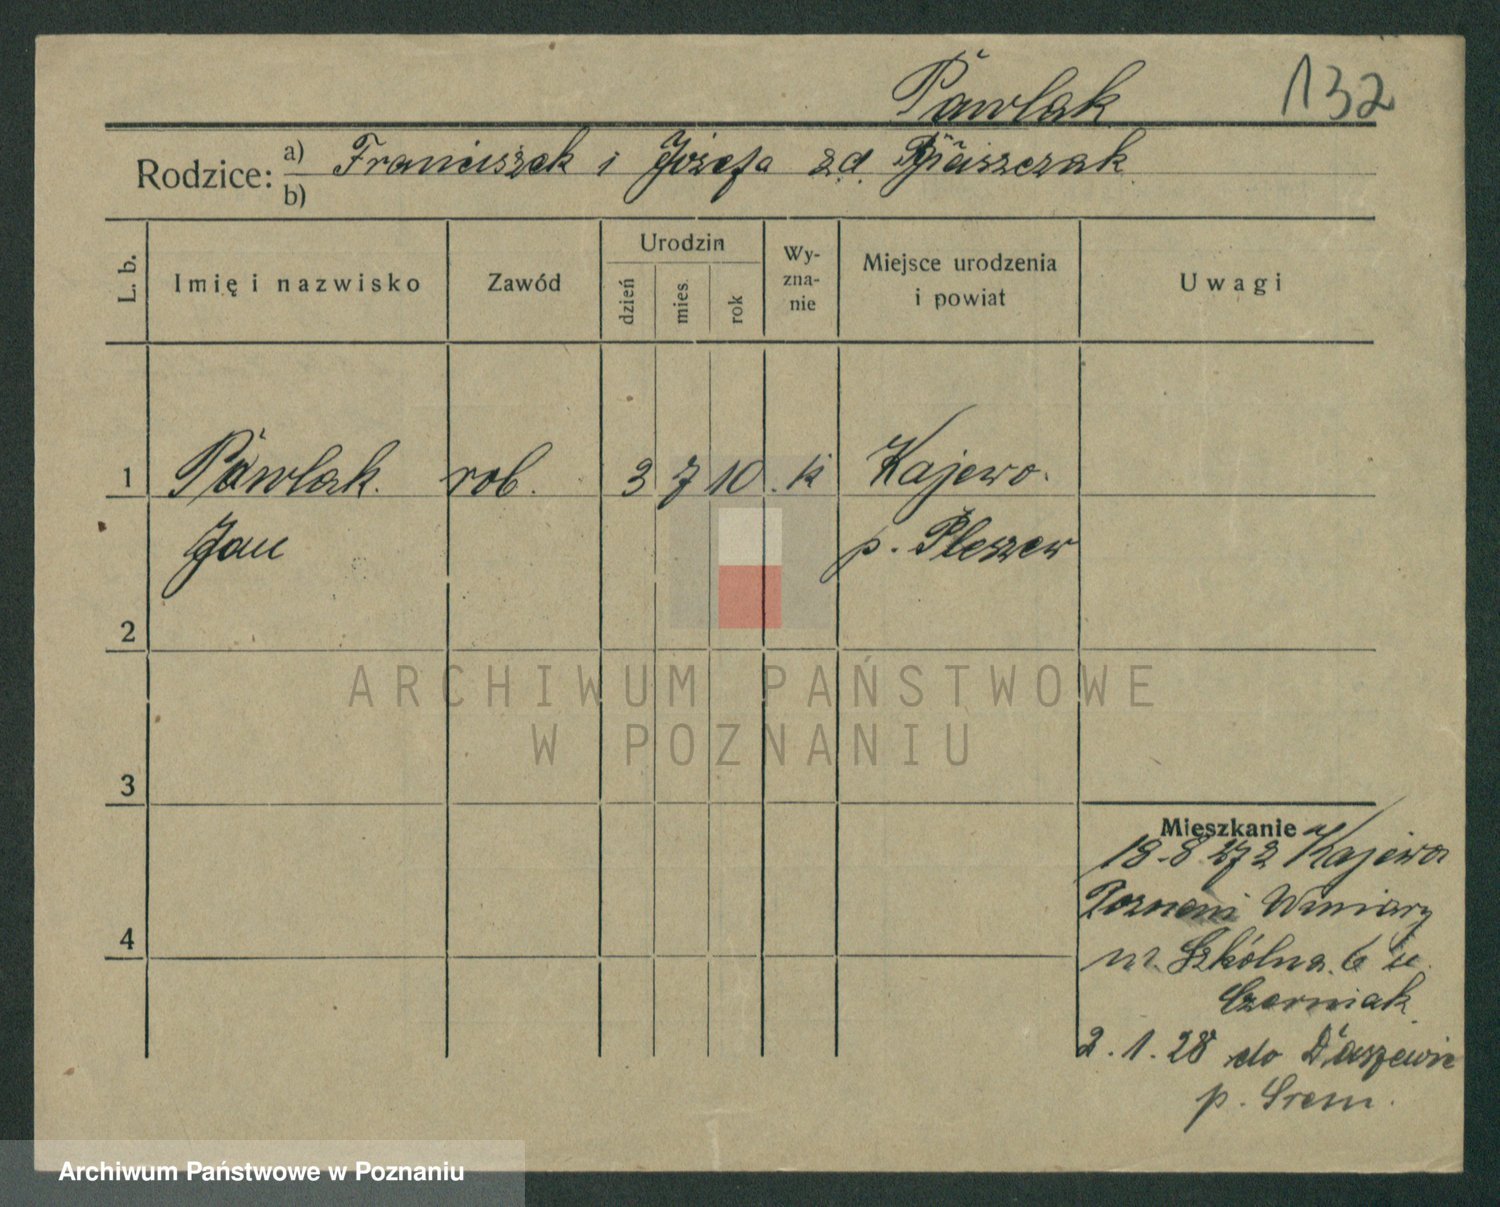 Pawlak 132
Rodzice: a) Franciszek i Józefa z d. Błaszczak
b)
L. b. Imię i nazwisko Zawód Urodzin dzień mies. rok Wy-zna-nie Miejsce urodzenia i powiat Uwagi
1 Pawlak rob. 3 7 10 k Kajewo.
Jan p. Pleszew
2
ARCHIWUM PAŃSTWOWE
W POZNANIU
3
Mieszkanie
18.8.27 z Kajewa
Poznań Winiary
Szkólna 6 u
Czerniak
4
2.1.28 do Daszewic
p. Śrem.
Archiwum Państwowe w Poznaniu